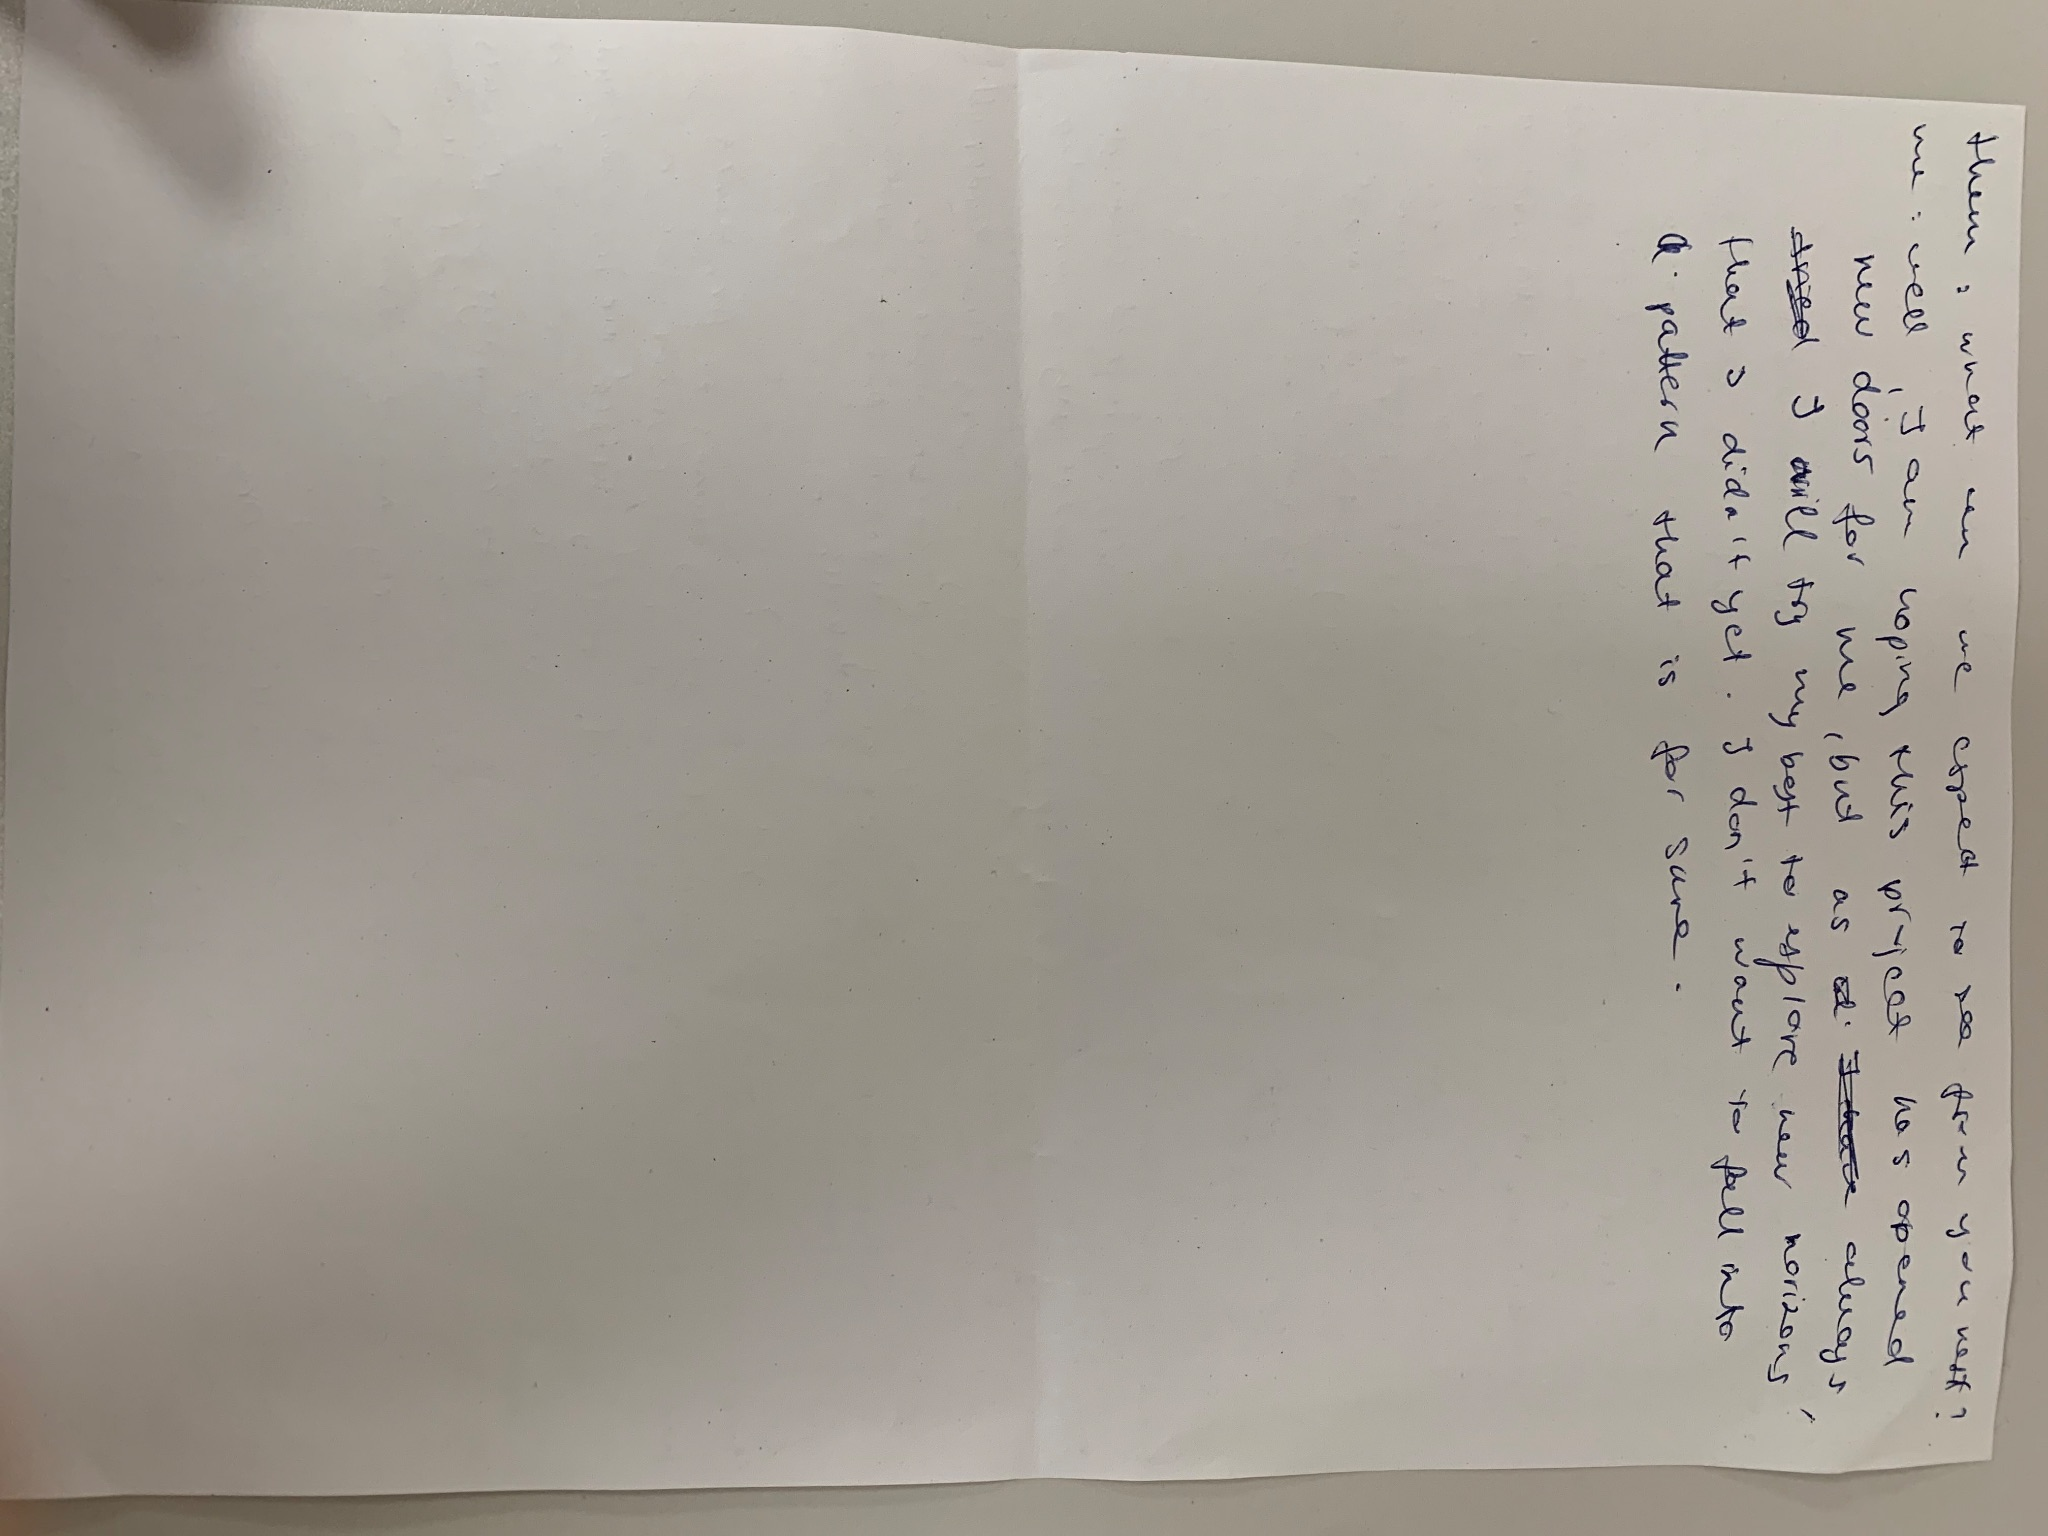 them : what can we expect to see from you next?
me : well, I am hoping this project has opened
new doors for me, but as always
I will try my best to explore new horizons,
that I didn't yet. I don't want to fall into
a pattern that is for sure.